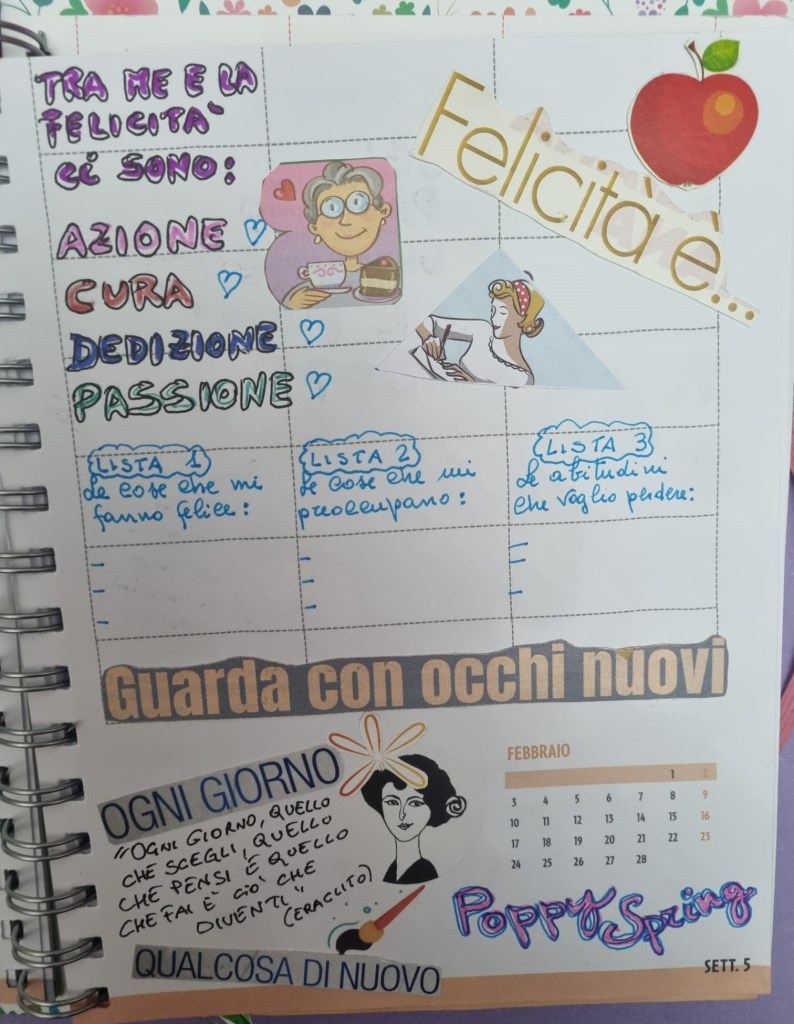 TRA ME E LA
FELICITÀ
Ci SONO:
AZIONE
CURA
DEDIZIONE
PASSIONE
Felicità è...
LISTA 1
Le cose che mi
fanno felice:
LISTA 2
Le cose che mi
preoccupano:
LISTA 3
Le abitudini
che voglio perdere:
Guarda con occhi nuovi
OGNI GIORNO
"OGNI GIORNO, QUELLO
CHE SCEGLI, QUELLO
CHE PENSI È QUELLO
CHE FAI È CIÒ CHE
DIVENTI"
(ERACLITO)
QUALCOSA DI NUOVO
FEBBRAIO
1 2
3 4 5 6 7 8 9
10 11 12 13 14 15 16
17 18 19 20 21 22 23
24 25 26 27 28
Poppy Spring
SETT. 5